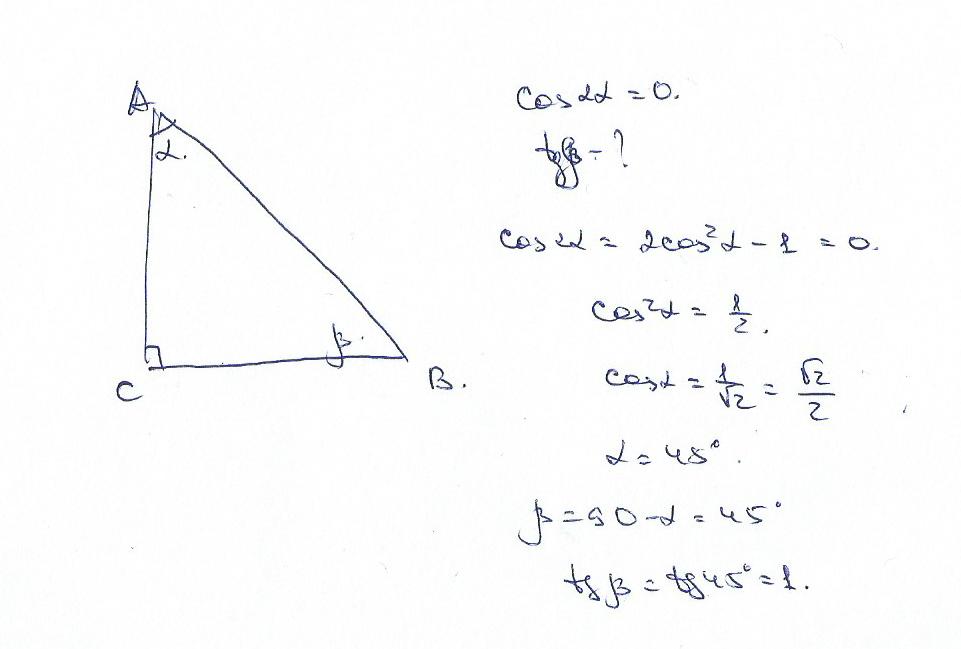 A
α.
C
β.
B.
cos 2α = 0.
tgβ - ?
cos 2α = 2cos²α - 1 = 0.
cos²α = 1/2.
cos α = 1/√2 = √2/2
α = 45°.
β = 90 - α = 45°
tg β = tg 45° = 1.